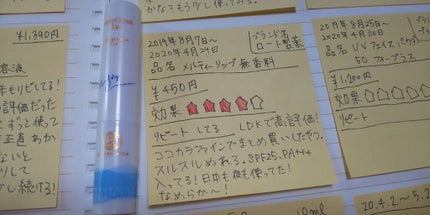 かなぁもう少し使ってみる。
¥1,390円
2019年8月7日〜
2020年4月29日
ブランド名
ロート製薬
品名 メルティーリップ 無香料
¥450円
効果
リピート してる LDKで高評価!
ココカラファインでまとめ買いしたやつ。
スルスルぬれる。SPF25、PA+++
入ってる!日中も夜も使ってた!
なめらか〜!
2019年8月25日〜
2020年4月30日
品名 UVフェイスパウダー
50 フォープラス
¥1,200円
効果
リピート
容液
もリピしてる!
高評価だった
ずっと使って
20.4.2〜5.2